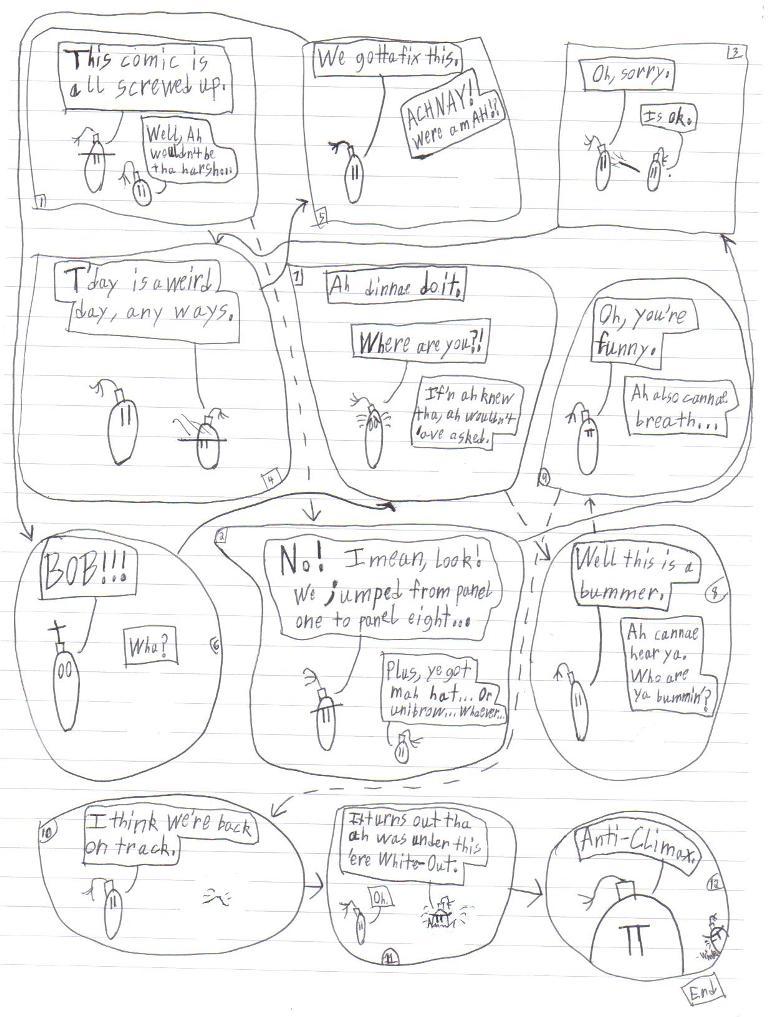 This comic is
all screwed up.
Well, Ah
wouldn't be
tha harsh...
1
We gotta fix this.
ACHNAY!
were am AH!?
5
3
Oh, sorry.
Is ok.
T'day is a weird
day, any ways.
4
7
Ah dinnae do it.
Where are you?!
If'n ah knew
tha, ah wouldn't
'ave asked.
Oh, you're
funny.
Ah also cannae
breath...
9
BOB!!!
Wha?
6
2
No! I mean, look!
We jumped from panel
one to panel eight...
Plus, ye got
mah hat... Or
unibrow... whaever...
Well this is a
bummer.
8
Ah cannae
hear ya.
Who are
ya bummin'?
10
I think we're back
on track.
It turns out tha
ah was under this
'ere White-Out.
Oh.
11
Anti-Climax.
12
End